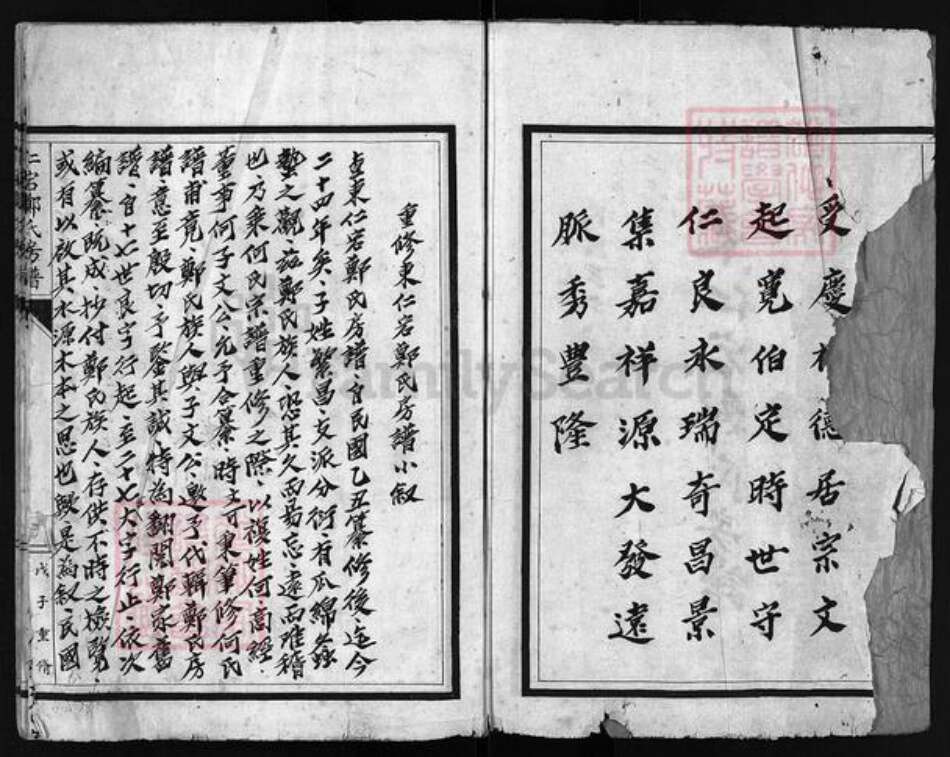 受慶 德居宗文
起寬伯定時世守
仁良永瑞奇昌景
集嘉祥源大發遠
脈秀豐隆
重修東仁宕鄭氏房譜小叙
東仁宕鄭氏房譜自民國乙丑纂修後迄今
二十四年矣子姓繁昌支派分衍有瓜綿螽
蟄之觀茲鄭氏族人恐其久而易忘遠而难稽
也乃乘何氏宗譜重修之際以複姓何高經
董事何子文公允予合纂時文可東筆修何氏
譜甫竟鄭氏族人與子文公邀予代輯鄭氏房
譜意至殷切予鑒其誠特為翻閱鄭家舊
譜自十七世良字行起至二十七大字行止依次
編纂既成抄付鄭氏族人存供不時之檢覽
或有以啟其水源木本之思也歟是為叙民國
仁宕鄭氏房譜
戊子重修
FamilySearch